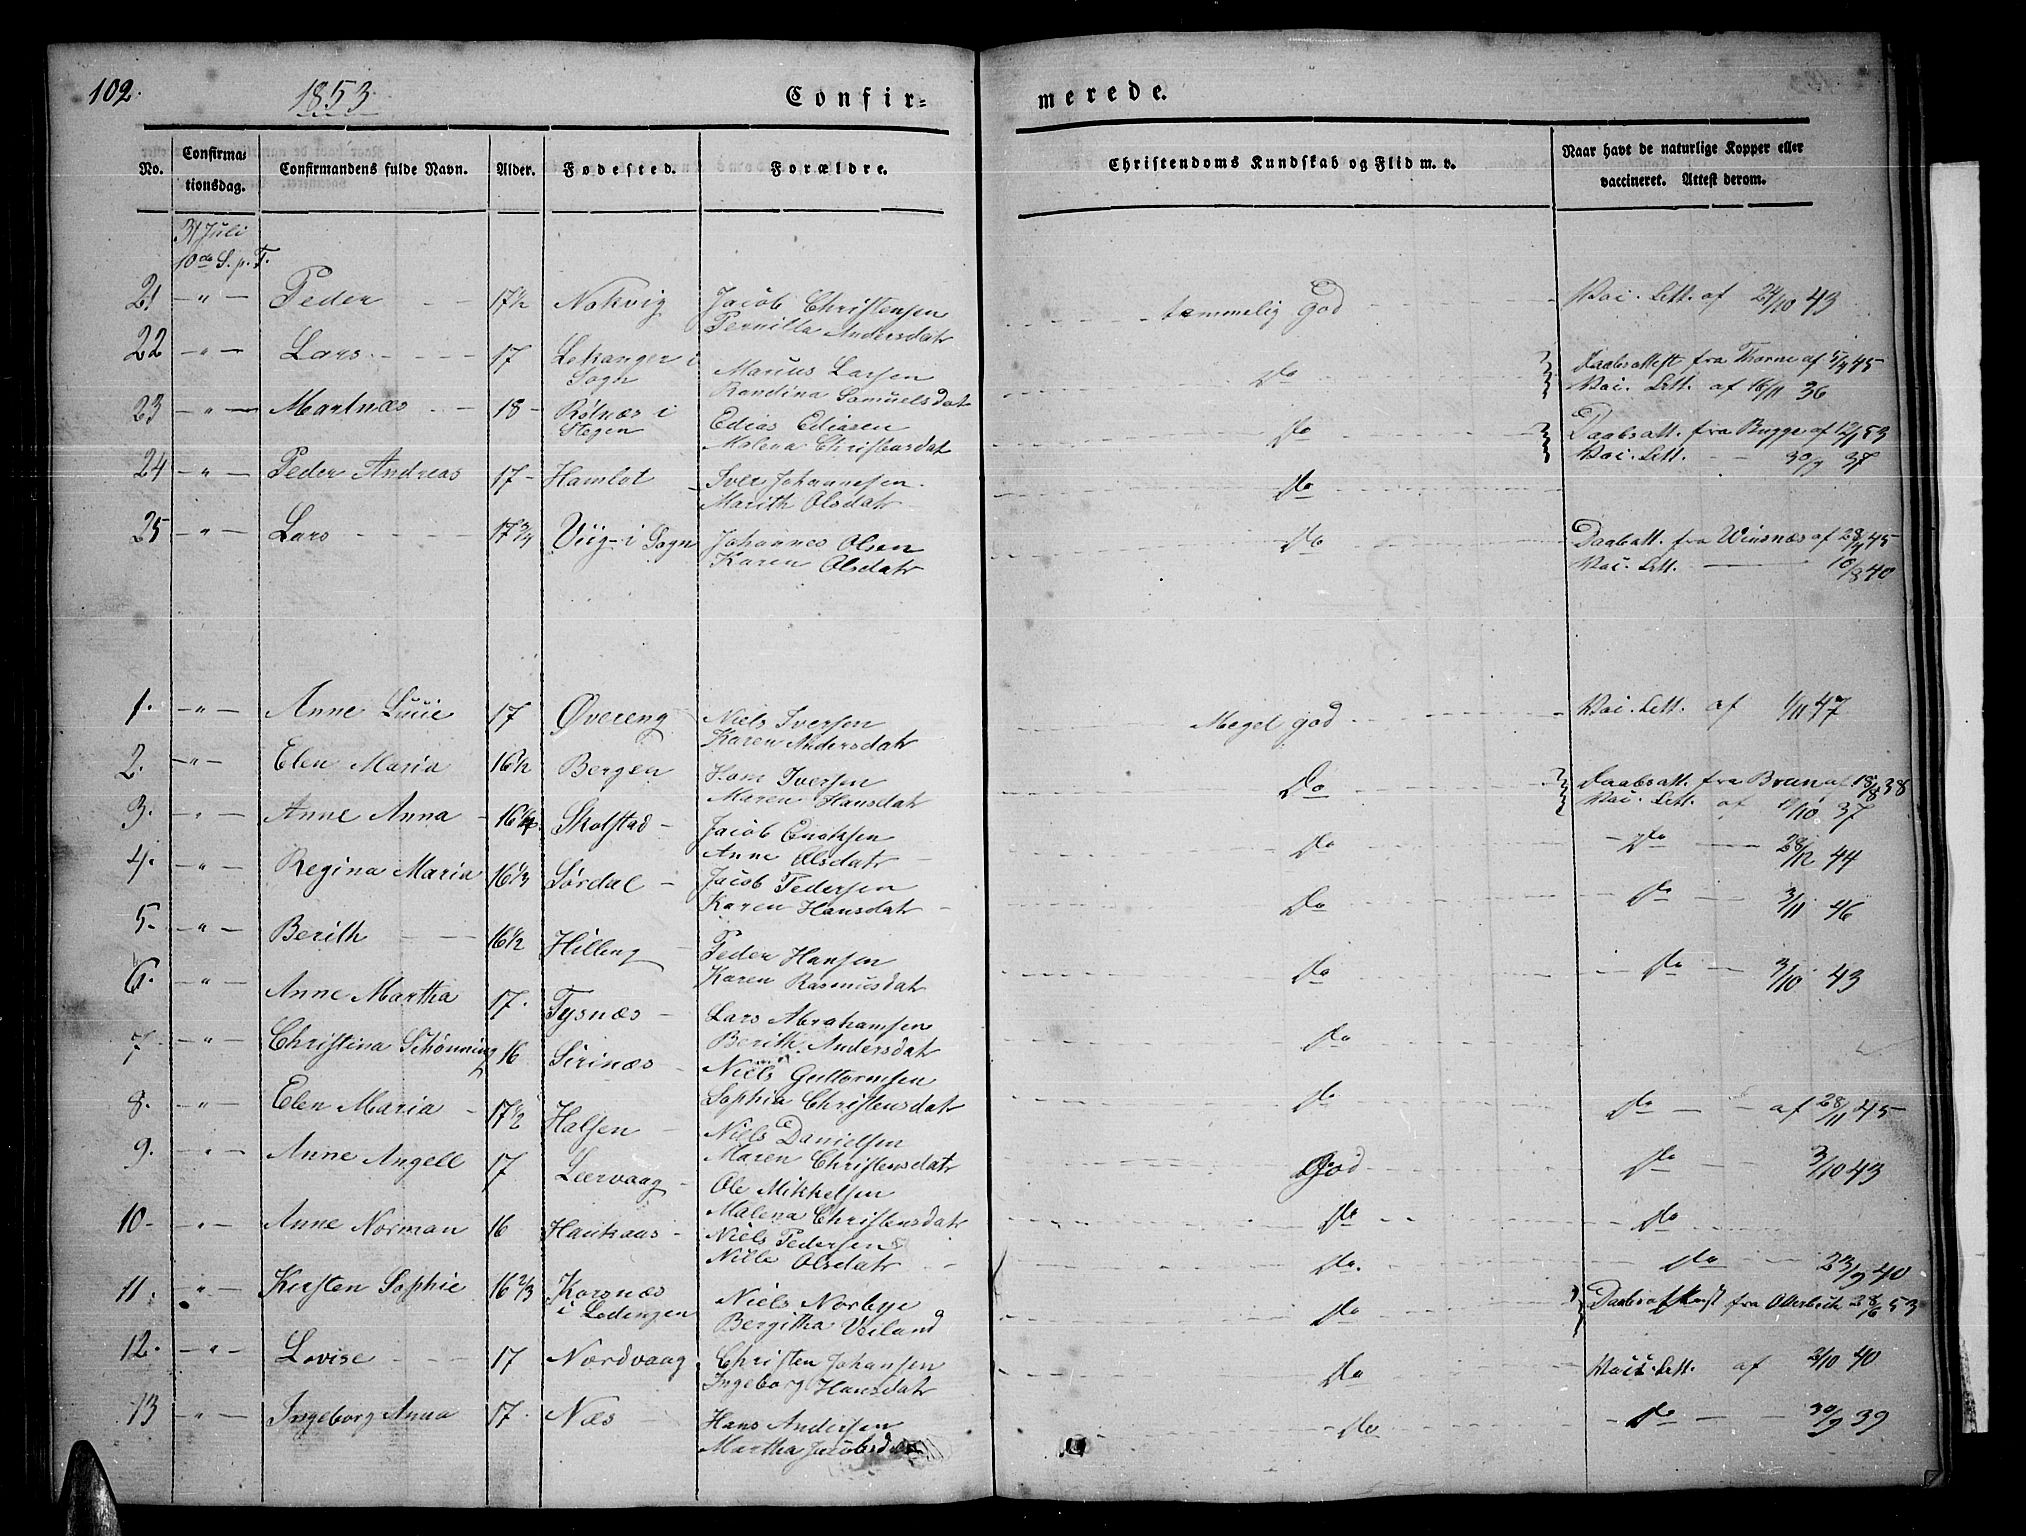 102. 1853 Confir= merede.
No. Confirma= tionsdag. Confirmandens fulde Navn. Alder. Fødested. Forældre. Christendoms Kundskab og Flid m. v. Naar havt de naturlige Kopper eller vaccineret. Attest derom.
31 Juli
10de S. p. T.
21 - " - Peder - - 17½ Nokvig Jacob Christensen temmelig god Vaci. Att. af 24/10 43
Pernilla Andersdatr
22 - " - Lars - - - 17 Lekanger i Marius Larsen Do Daabsattest fra Thorne af 5/4 45
Sogn Randina Samuelsdat Vaci. Att. af 16/11 36
23 - " - Martnæs - - 18 - Rølnæs i Edias Ediasen Do Daabsatt. fra Bugge af 12/1 53
Stegen Malena Christensdat Vaci. Att. - - 30/9 37
24 - " - Peder Andreas 17 - Hamlot - Iver Johannesen Do
Marith Olsdatr
25 - " - Lars - - - 17¾ Viig i Sogn Johannes Olsen Do Daabsatt. fra Winsnæs af 28/4 45
Karen Olsdatr Vaci. Att. - - 10/8 40
1. - " - Anne Lucie 17 Øvereng Niels Iversen Meget god Vaci. Att. af 1/11 47
Karen Andersdatr
2. - " - Elen Maria 16½ Bergen Hans Iversen Do Daabsatt. fra Brun af 18/8 38
Maren Hansdatr Vaci. Att. af 11/10 37
3. - " - Anne Anna - 16¼ Skolstad - Jacob Enoksen Do - Do - 28/12 44
Anne Olsdatr
4. - " - Regina Maria 16⅓ Sørdal - Jacob Pedersen Do - Do - 3/11 46
Karen Hansdatr -
5. - " - Berith - - - 16½ Hilling - Peder Hansen Do - Do - 3/10 43
Karen Rasmusdatr
6. - " - Anne Martha 17. Tysnæs - Lars Abrahamsen Do
Berith Andersdatr
7 - " - Christina Schønning 16 Sirinæs - Niels Guttormsen Do Do - - af 28/11 45
Sophia Christensdatr
8. - " - Elen Maria - 17½ Halsen - Niels Danielsen God Do - 3/10 43
Maren Christensdatr
9. - " - Anne Angell 17 Leervaag - Ole Mikkelsen Do - Do
Malena Christensdatr
10 - " - Anne Norman 16 Haukaas - Niels Pedersen Do. Do - 23/9 40
Nille Olsdatr
11. - " - Kirsten Sophie 16⅔ Korsnæs Niels Norbye Do Daabsattest fra Otterbeck 28/6 53
i Lødingen Bergitha Veiland
12. - " - Lovise - - - 17 Nordvaag Christen Johansen Do Vaci. Att. af 2/10 40
Ingeborg Hansdatr
13 - " - Ingeborg Anna 17. Næs - Hans Andersen Do - Do - 30/9 39
Martha Jacobsdatr